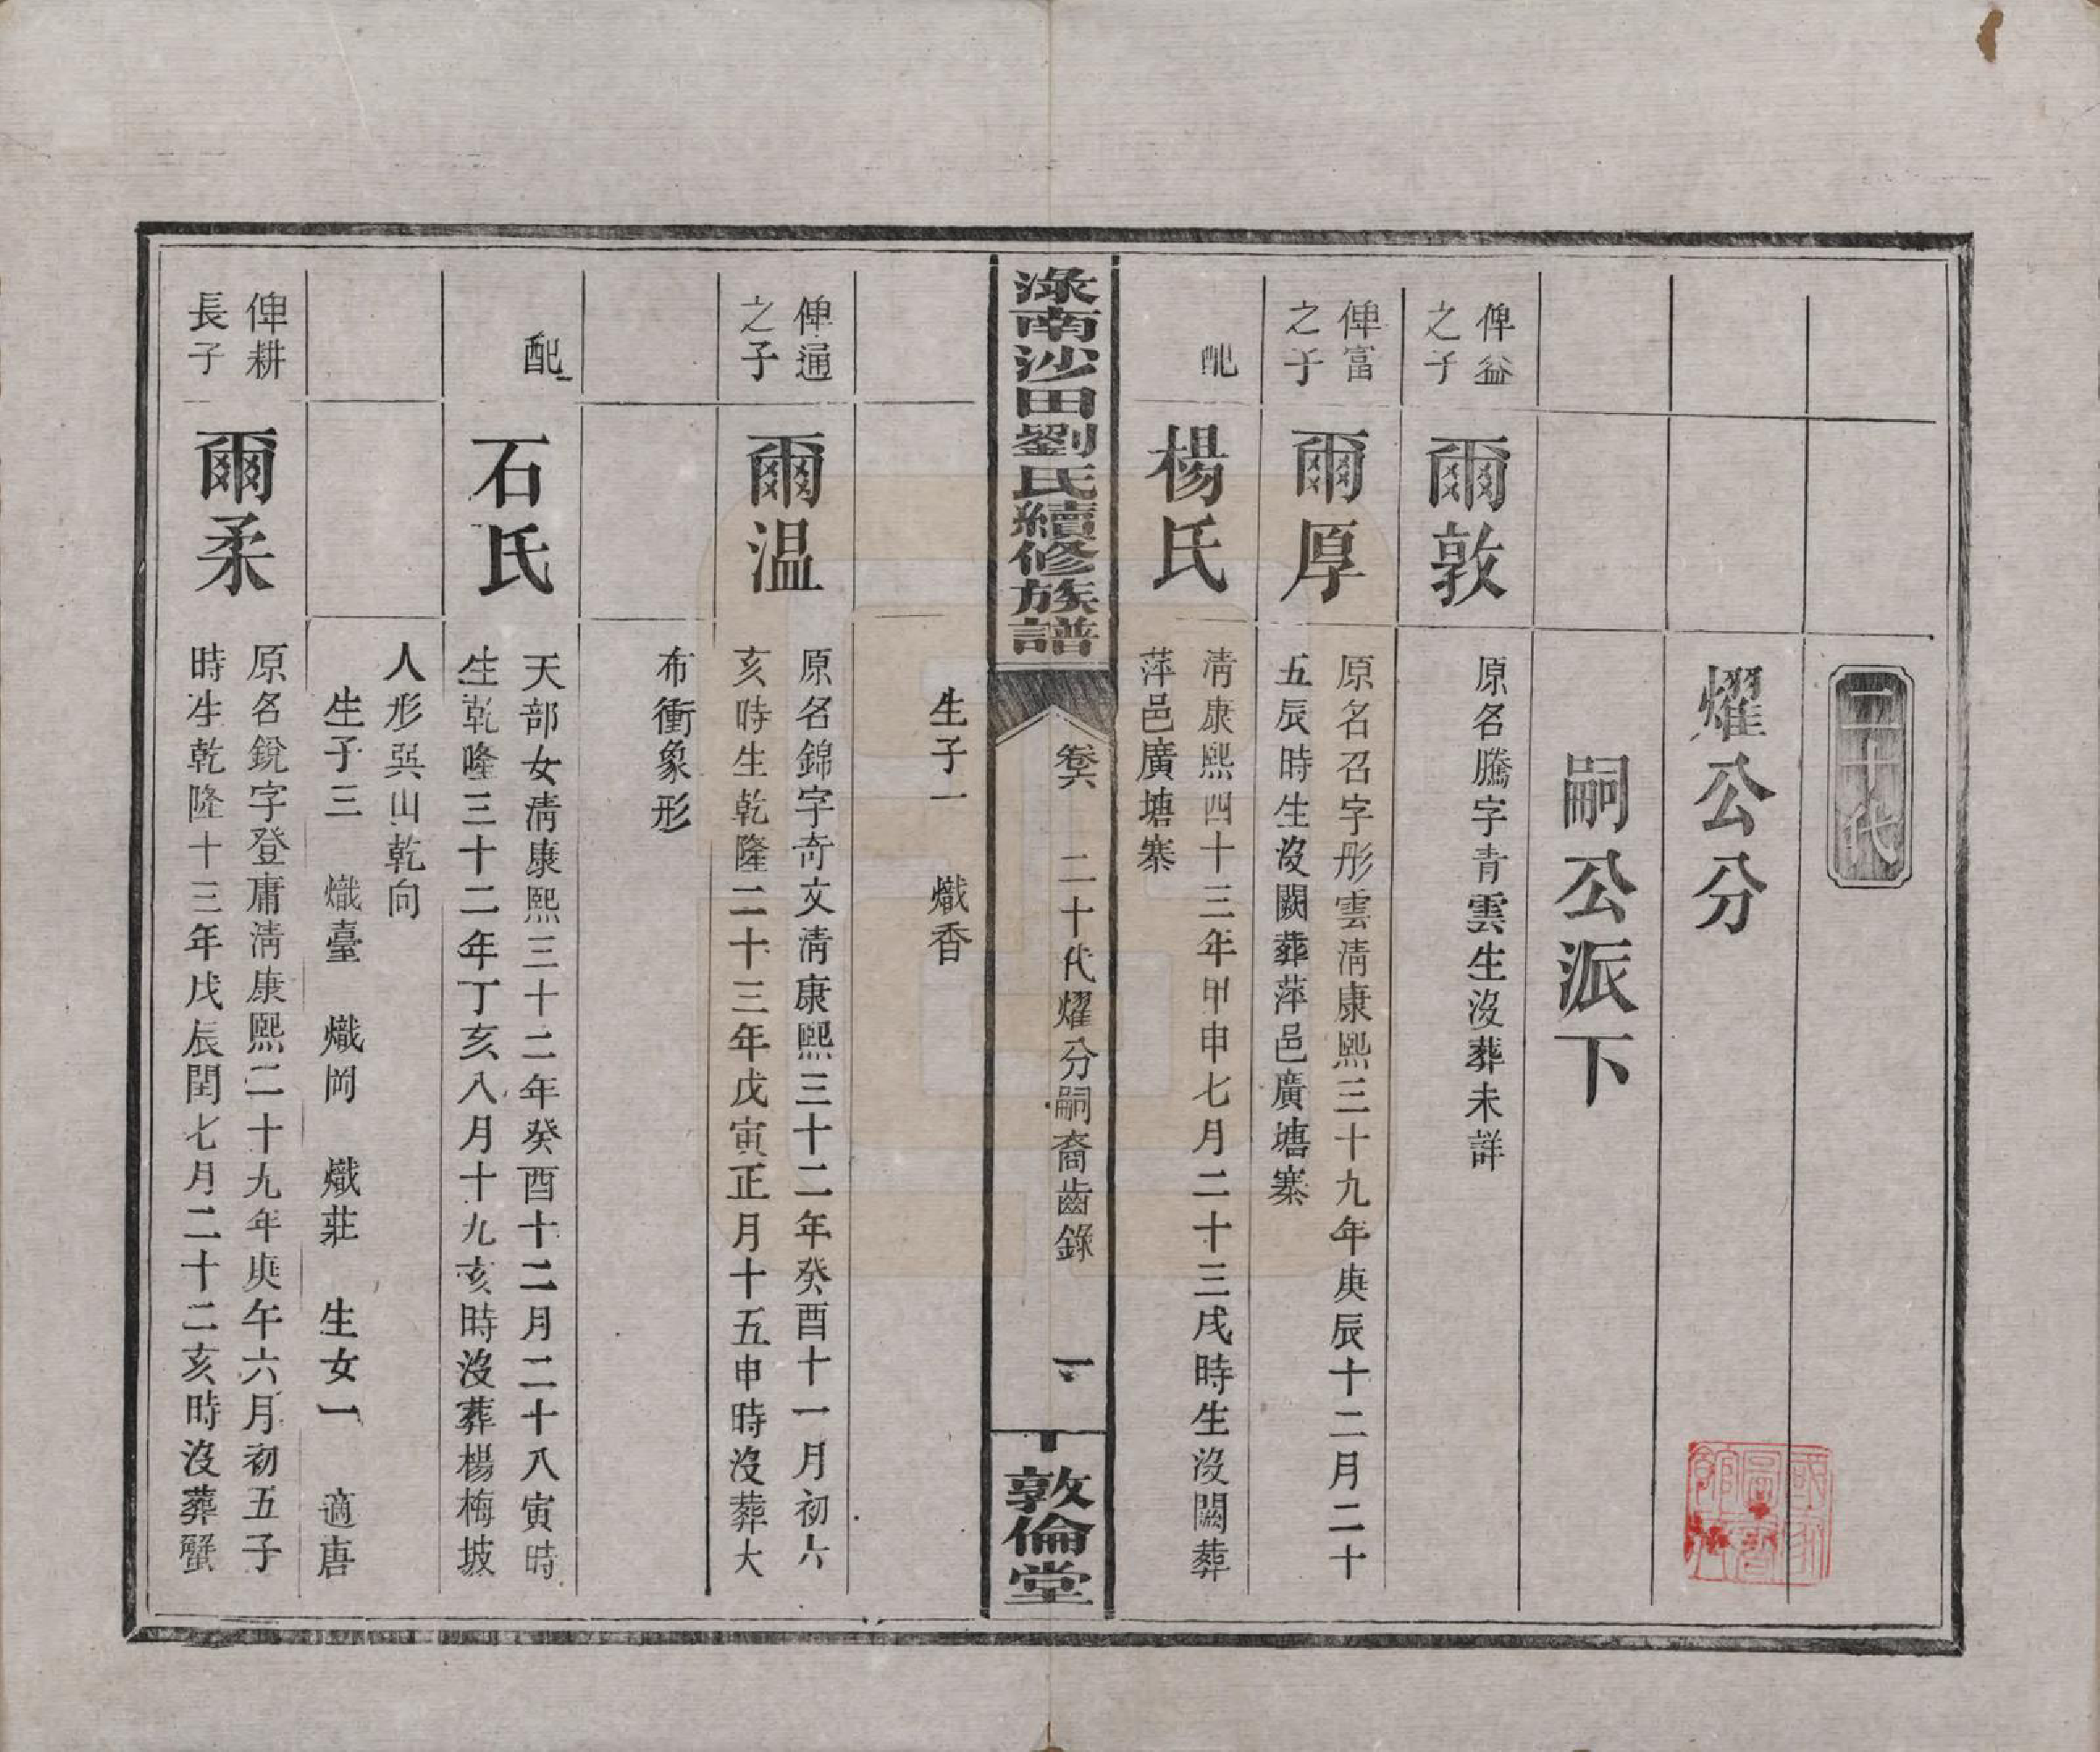 二十代
燿公分
嗣公派下
俾益
之子
爾敦
原名騰字青雲生沒葬未詳
俾富
之子
爾厚
原名召字彤雲淸康熙三十九年庚辰十二月二十
五辰時生沒闕葬萍邑廣塘寨
配
楊氏
淸康熙四十三年甲申七月二十三戌時生沒闕葬
萍邑廣塘寨
淥南沙田劉氏續修族譜
卷六
二十代燿分嗣裔齒錄
一
敦倫堂
生子一 熾香
俾通
之子
爾温
原名錦字奇文淸康熙三十二年癸酉十一月初六
亥時生乾隆二十三年戊寅正月十五申時沒葬大
布衝象形
配
石氏
天部女淸康熙三十二年癸酉十二月二十八寅時
生乾隆三十二年丁亥八月十九亥時沒葬楊梅坡
人形巽山乾向
生子三 熾臺 熾岡 熾莊 生女一 適唐
俾耕
長子
爾柔
原名銳字登庸淸康熙二十九年庚午六月初五子
時生乾隆十三年戊辰閏七月二十二亥時沒葬蟹